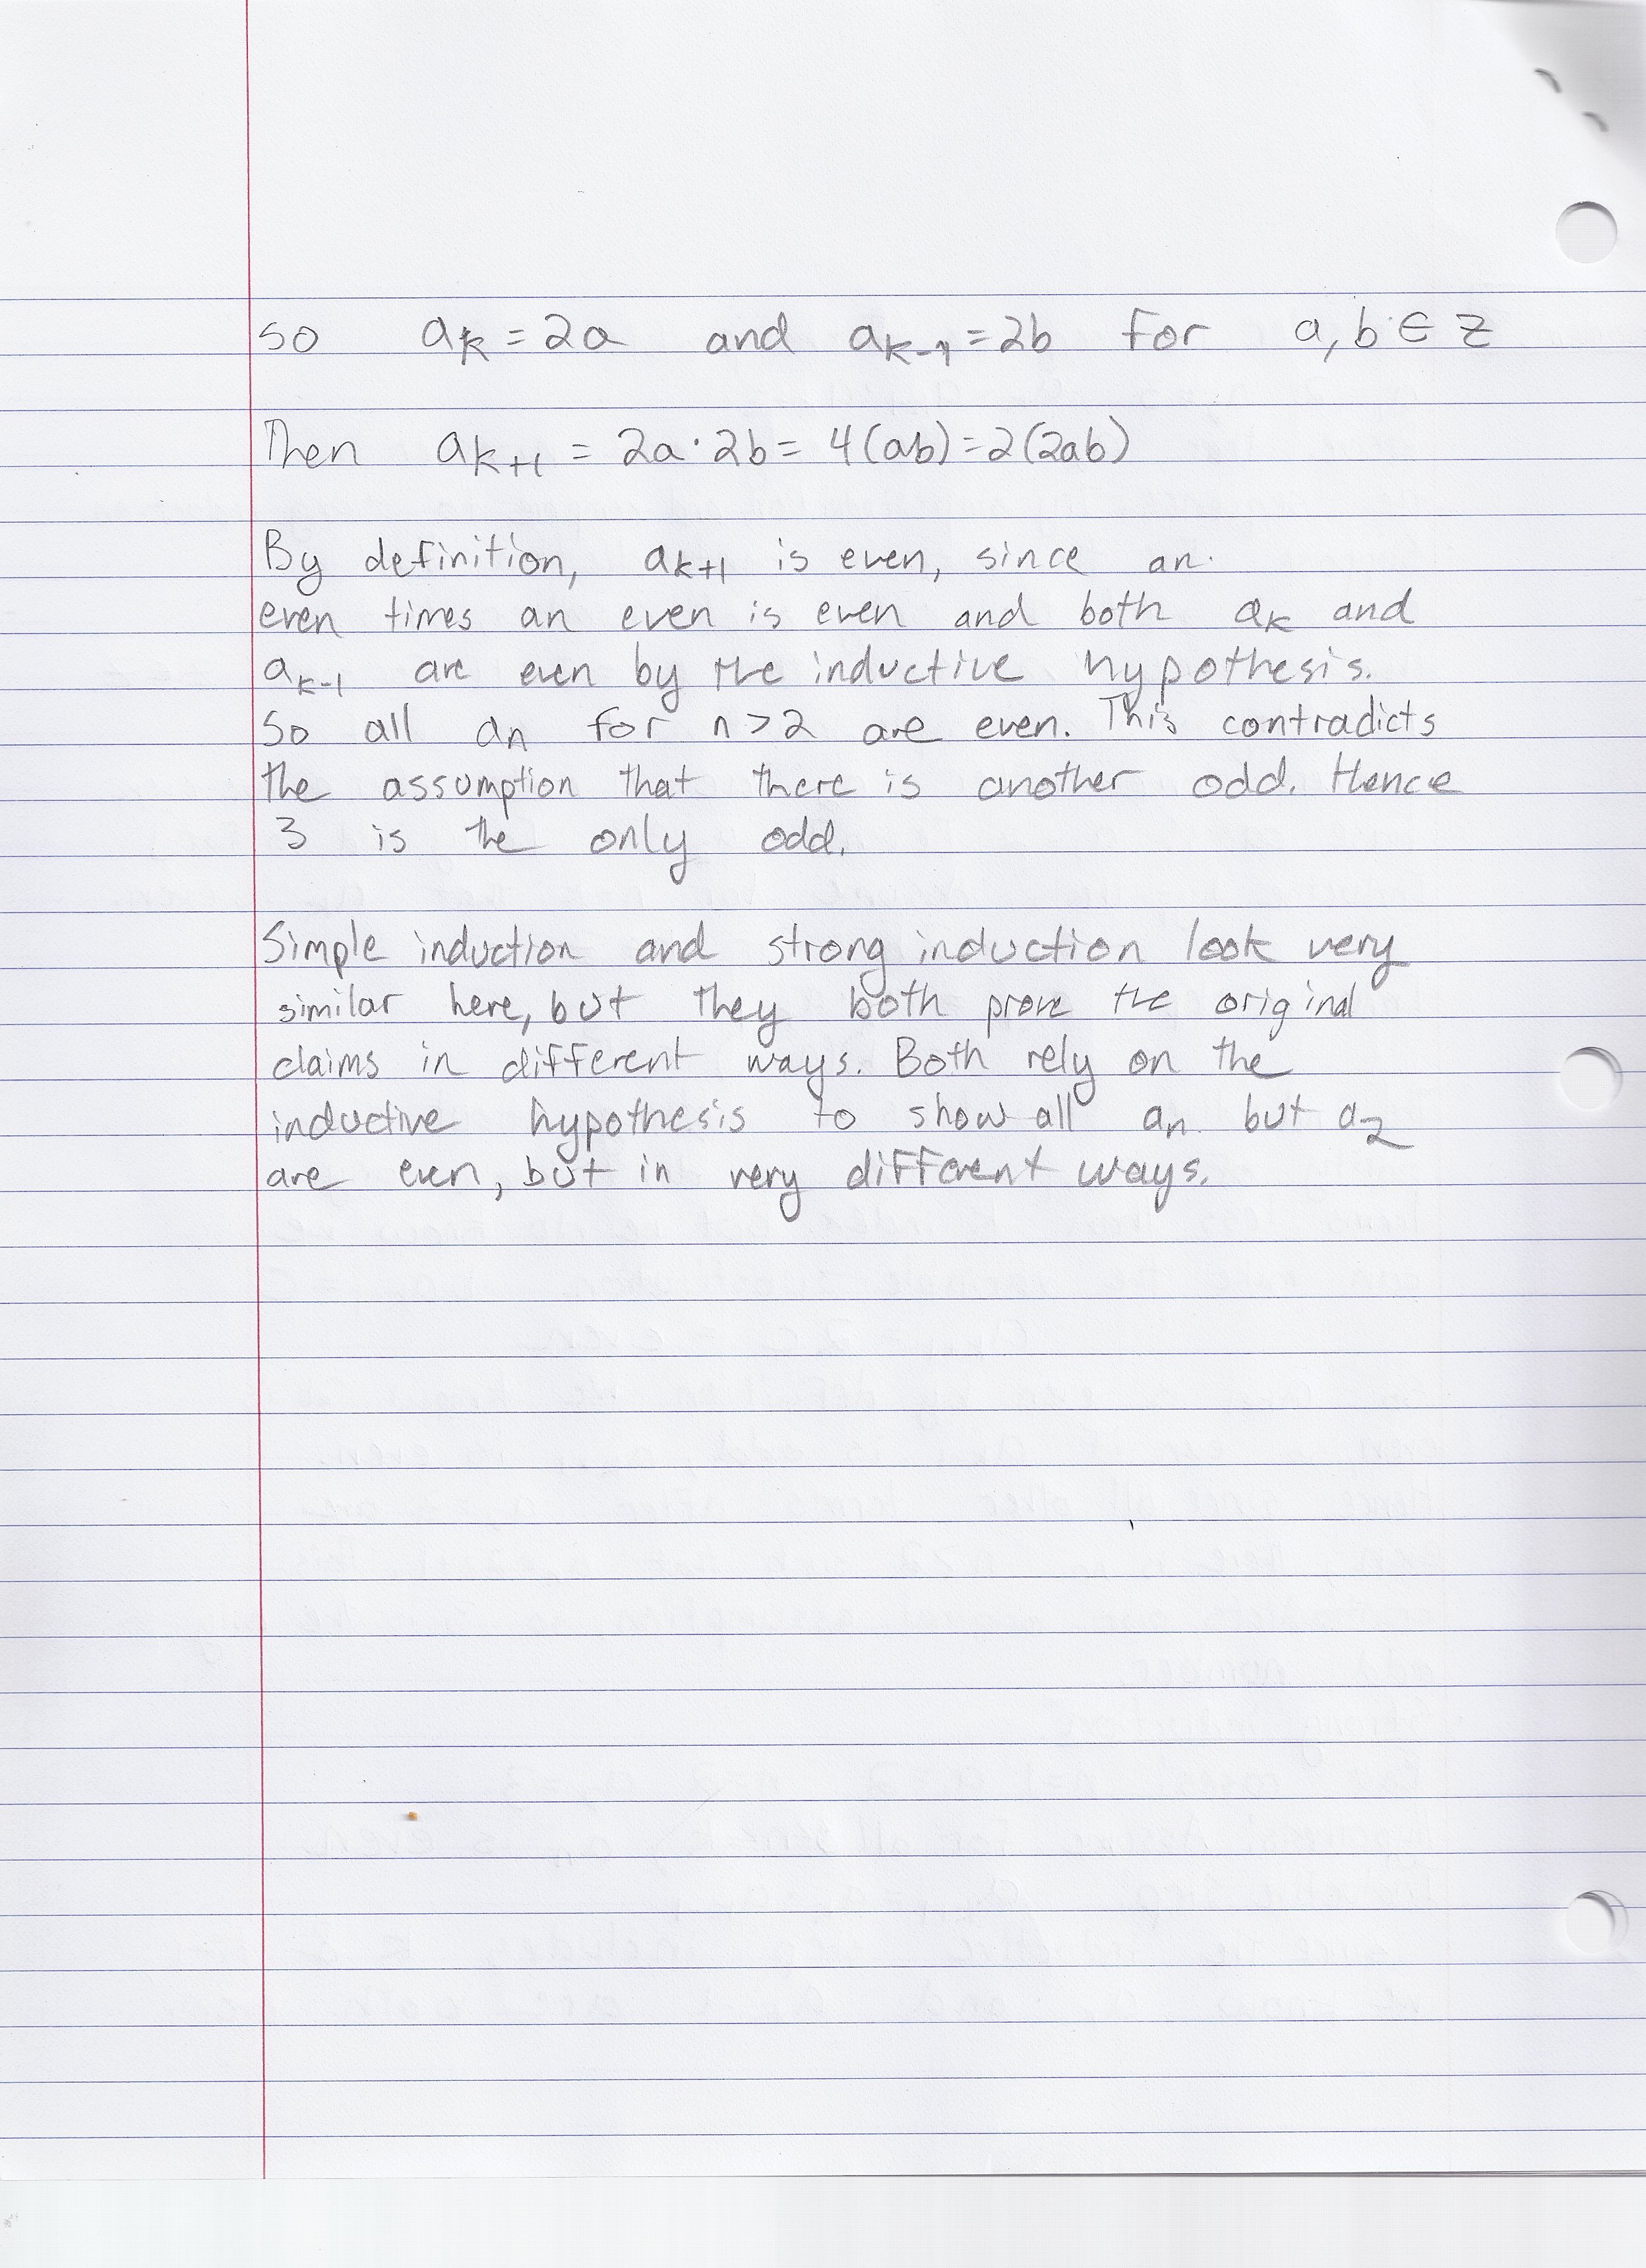 so aₖ = 2a and aₖ₋₁ = 2b for a, b ∈ Z
Then aₖ₊₁ = 2a · 2b = 4(ab) = 2(2ab)
By definition, aₖ₊₁ is even, since an
even times an even is even and both aₖ and
aₖ₋₁ are even by the inductive hypothesis.
So all aₙ for n > 2 are even. This contradicts
the assumption that there is another odd. Hence
3 is the only odd.
Simple induction and strong induction look very
similar here, but they both prove the original
claims in different ways. Both rely on the
inductive hypothesis to show all aₙ but a₂
are even, but in very different ways.